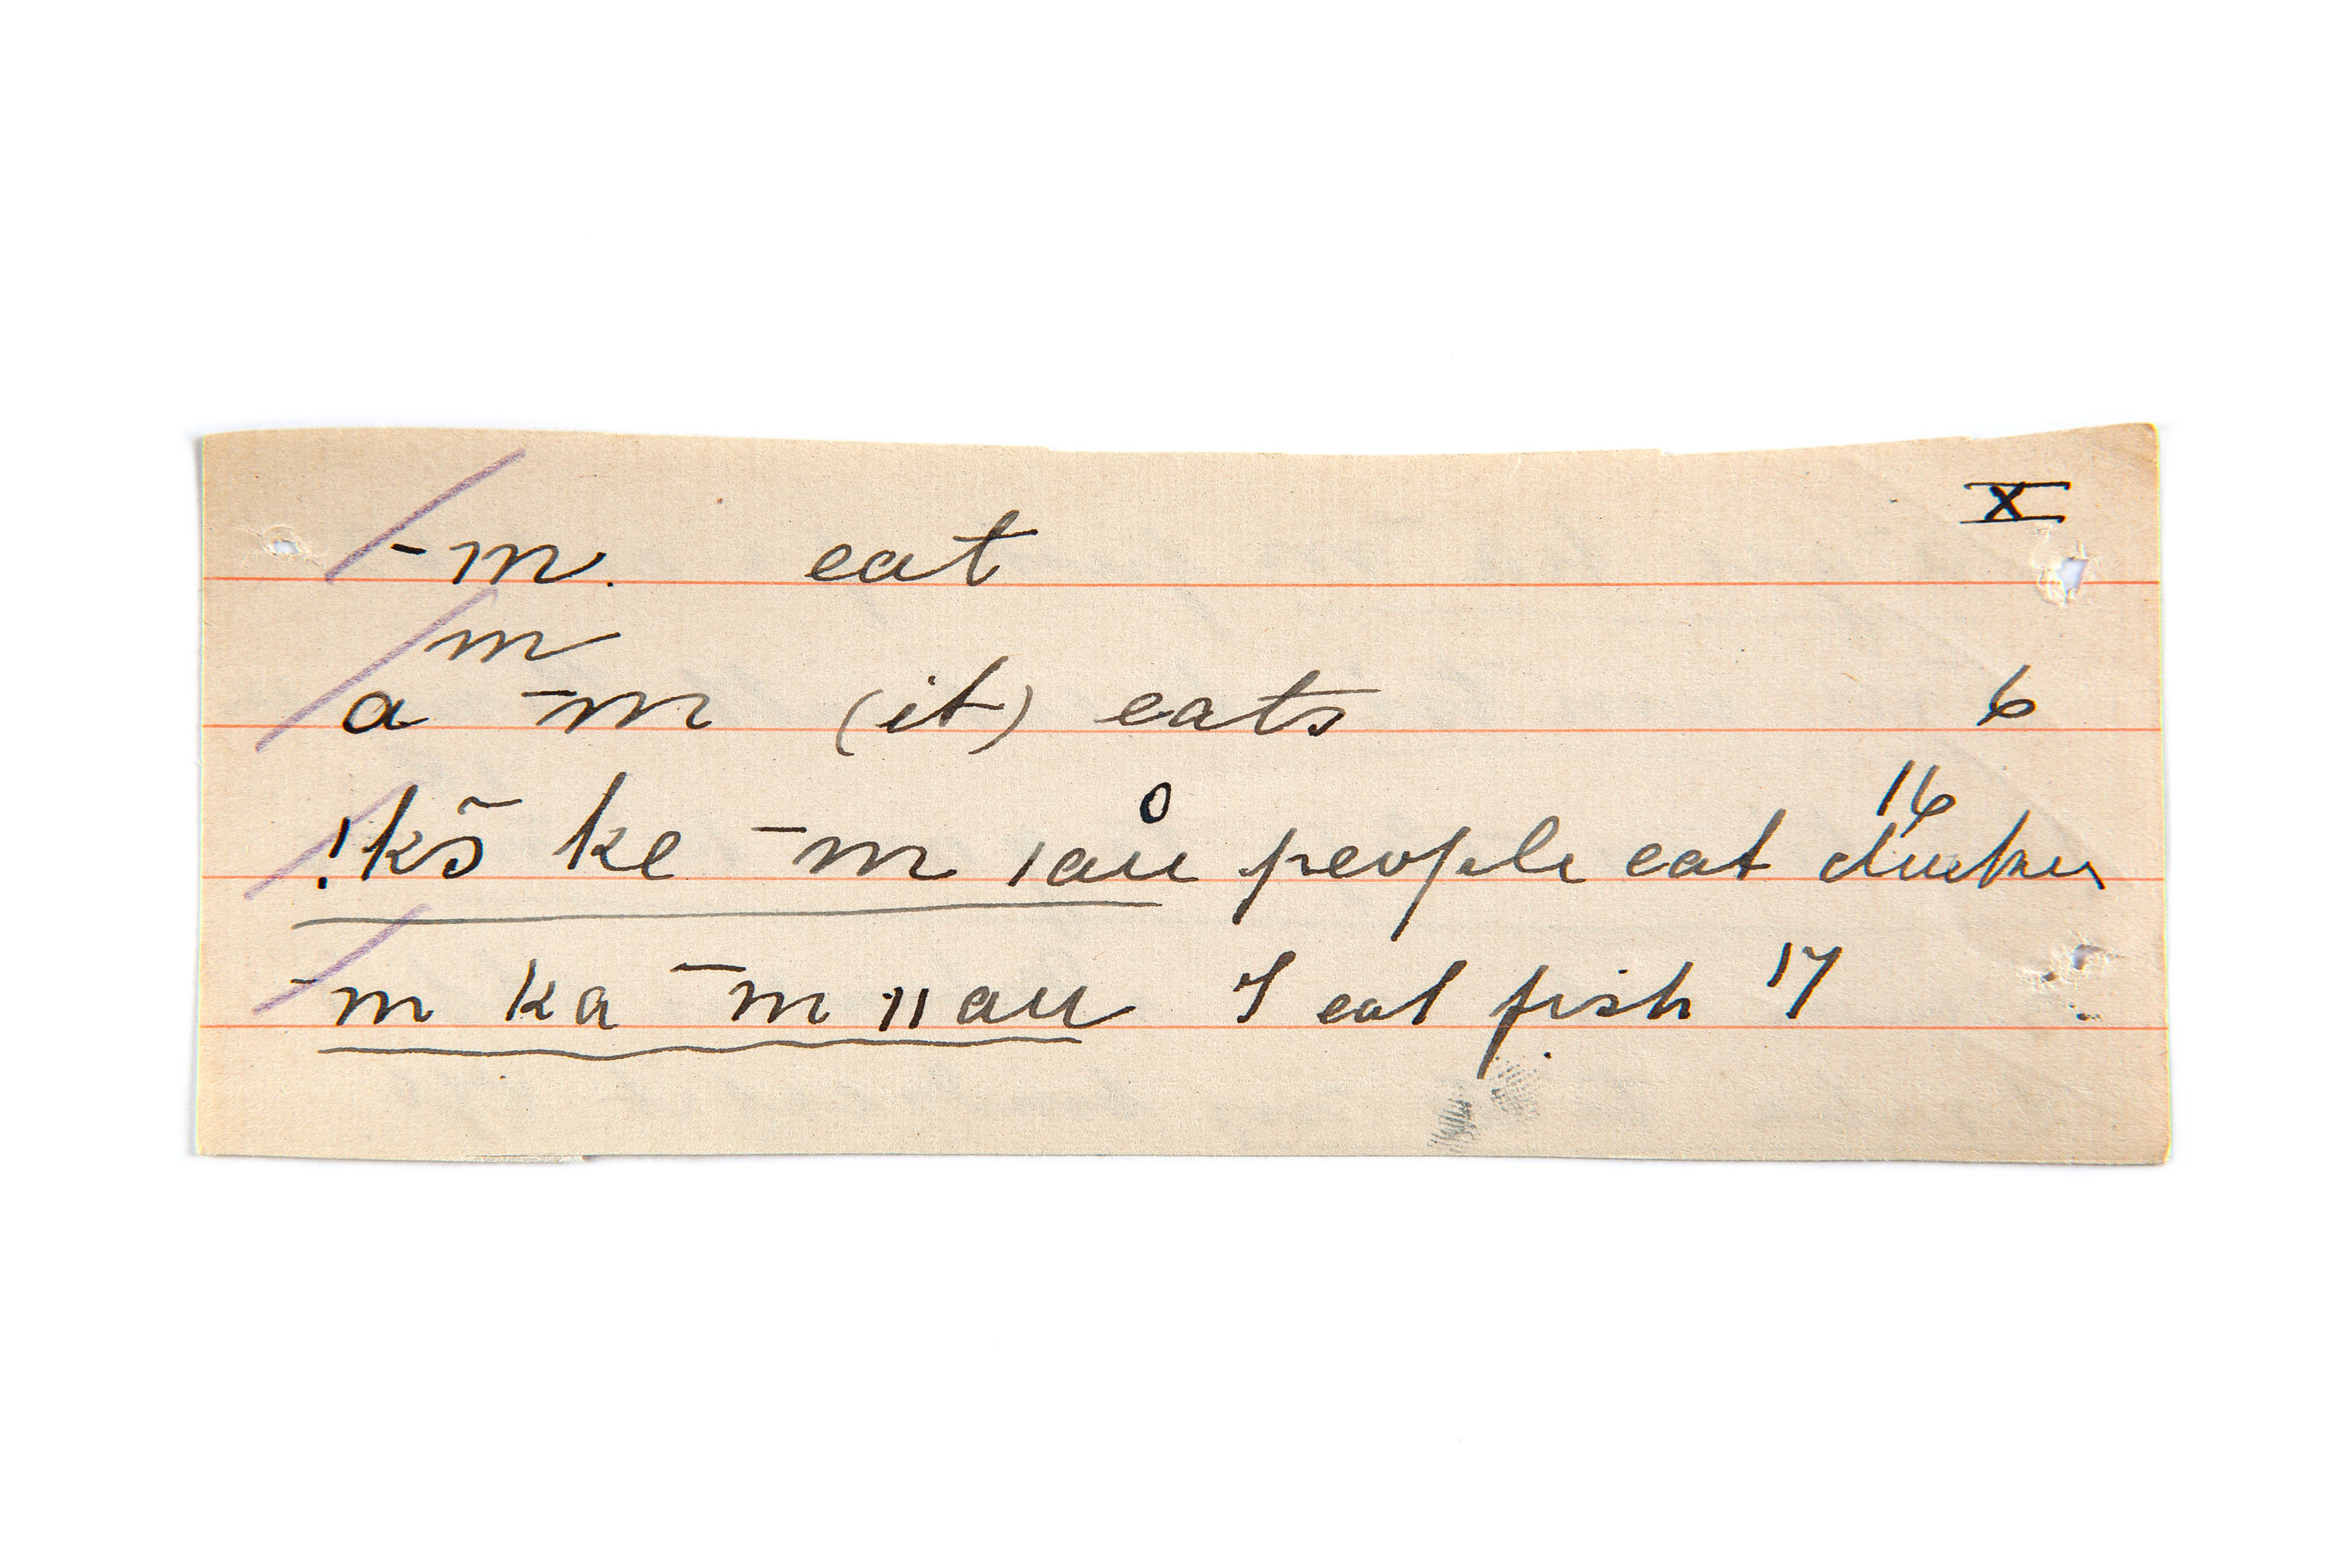 X
-m. eat
m
a -m (it) eats 6
!kõ ke -m |au̥ people eat ducks 16
-m ka -m ||au I eat fish 17